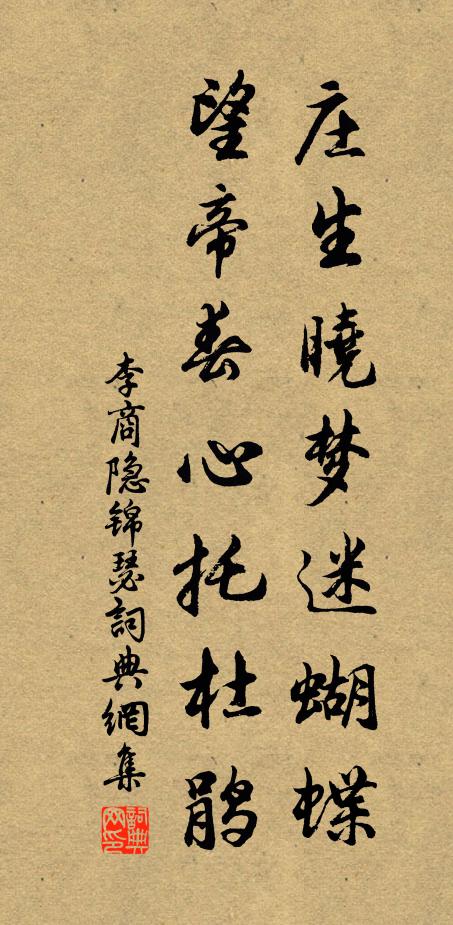 庄生曉梦迷蝴蝶
望帝春心托杜鹃
李商隐锦瑟詞典網集
詞典网印